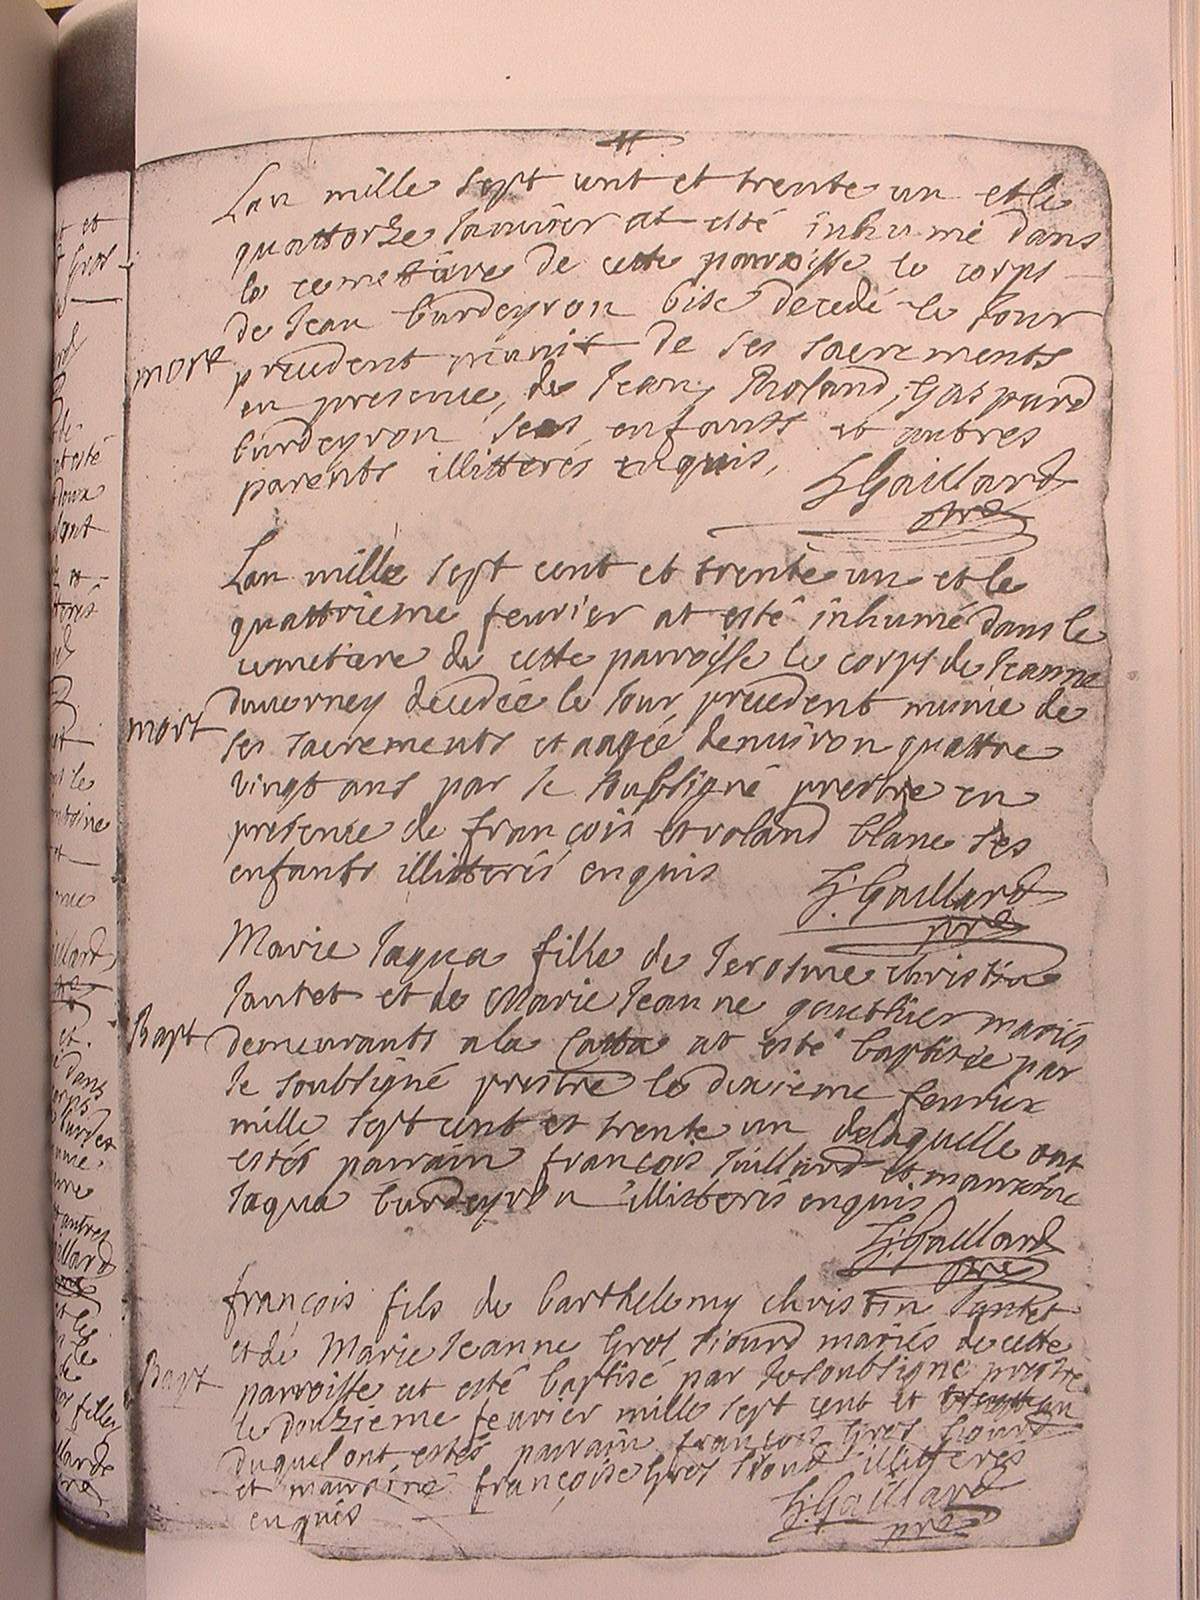 Lan mille sept cent et trente un et le
quattorze Janvier at esté inhumé dans
le cemetiere de cette parroisse le corps
de Jean burdeyron bise decedé le Jour
mort
precedent munit de ses sacrements
en presence, de Jean, Rholand, Gaspard
burdeyron ses enfants et autres
parents illitterés enquis,
Gaillard
pre
Lan mille sept cent et trente un et le
quattrieme fevrier at esté inhumé dans le
cemetiere de cette parroisse le corps de Jeanne
duverney decedée le Jour precedent munie de
mort
ses sacrements et aagée denuiron quattre
vingt ans par le soubsigné prestre en
presence de françois et roland blanc ses
enfants illitterés enquis
Gaillard
pre
Marie Jaqua fille de Jerosme christin
tantet et de Marie Jeanne gauthier mariés
Bapt
demeurants a la Catta at esté baptisée par
le soubsigné prestre le dixieme feurier
mille sept cent et trente un delaquelle ont
estés parrain françois Juillard et marraine
Jaqua burdeyron illitterés enquis
Gaillard
pre
françois fils de barthelemy christin tantet
et de Marie Jeanne Gros Siourd mariés de cette
Bapt
parroisse at esté baptisé par le soubsigné prestre
le douzieme feurier mille sept cent et trente un
duquel ont estés parrain françois Gros Siourd
et marraine françoise Gros Siourd illitterés
enquis
Gaillard
pre